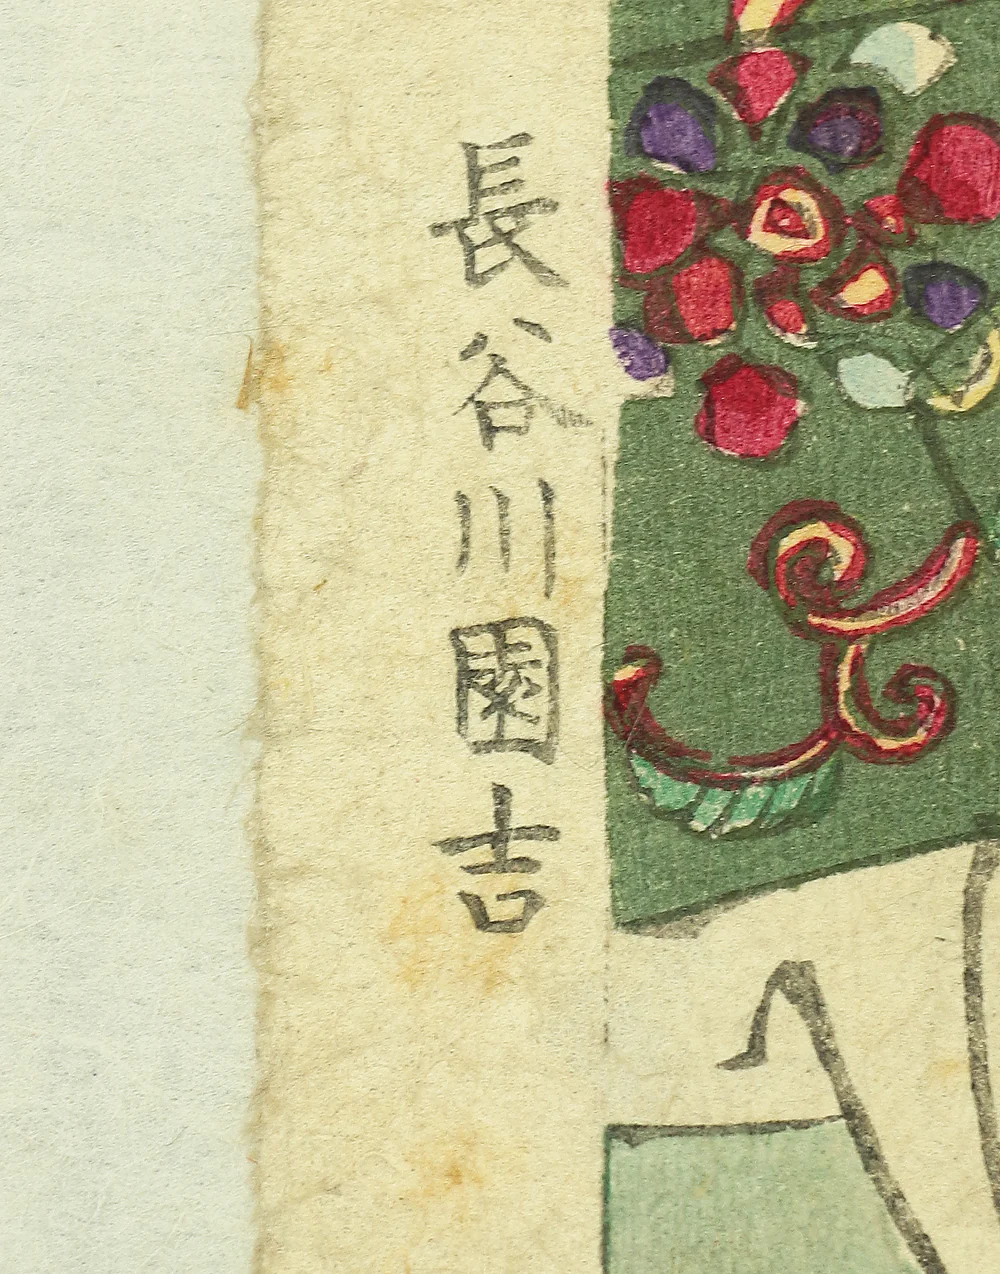 長谷川園吉